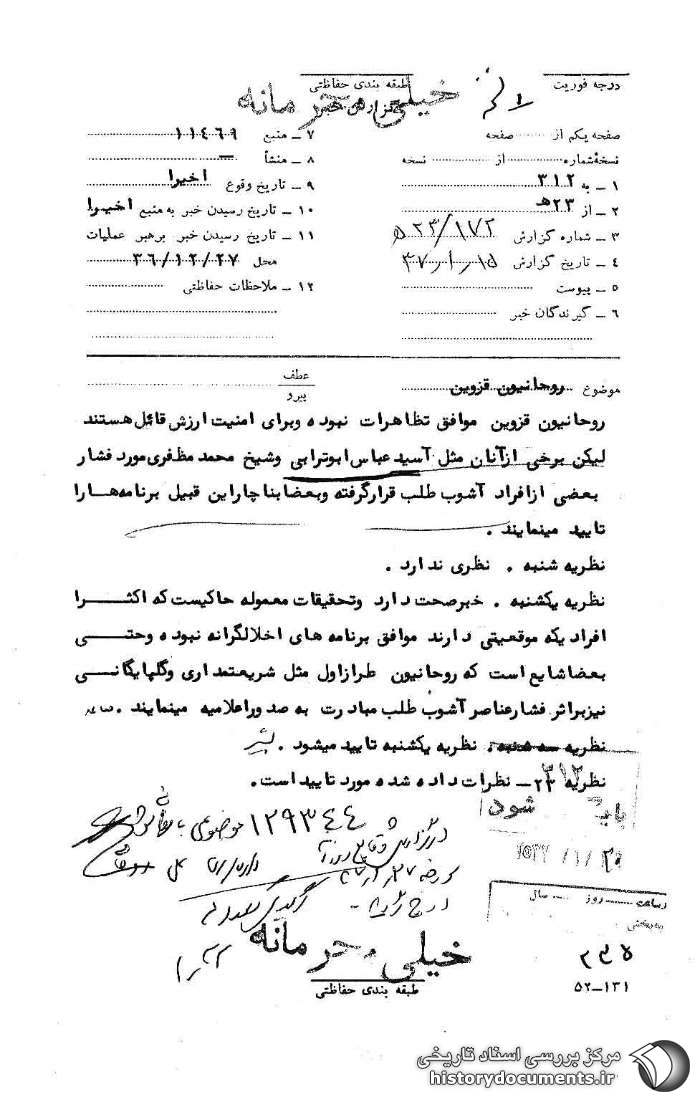 درجه فوریت
طبقه بندی حفاظتی
خیلی محرمانه
گزارش خبر
صفحه یکم از ........ صفحه
نسخه شماره ........ از ........ نسخه
۱ ـ به ۳۱۲
۲ ـ از ۲۳هـ
۳ ـ شماره گزارش ۲۳/۱۷۲
۴ ـ تاریخ گزارش ۳۷/۱/۱۵
۵ ـ پیوست
۶ ـ گیرندگان خبر
۷ ـ منبع ۱۱۴۶۹
۸ ـ منشأ ـ
۹ ـ تاریخ وقوع اخیرا
۱۰ ـ تاریخ رسیدن خبر به منبع اخیرا
۱۱ ـ تاریخ رسیدن خبر برهبر عملیات
محل ۳۶/۱۲/۲۷
۱۲ ـ ملاحظات حفاظتی
موضوع روحانیون قزوین
عطف
پیرو
روحانیون قزوین موافق تظاهرات نبوده وبرای امنیت ارزش قائل هستند
لیکن برخی ازآنان مثل آسید عباس ابوترابی وشیخ محمد مظفری مورد فشار
بعضی ازافراد آشوب طلب قرارگرفته وبعضا بناچاراین قبیل برنامه‌هارا
تایید مینمایند .
نظریه شنبه . نظری ندارد .
نظریه یکشنبه . خبرصحت دارد وتحقیقات معموله حاکیست که اکثرا
افرادیکه موقعیتی دارند موافق برنامه های اخلالگرانه نبوده وحتی
بعضاشایع است که روحانیون طرازاول مثل شریعتمداری وگلپایگانی
نیزبراثر فشارعناصر آشوب طلب مبادرت به صدوراعلامیه مینمایند .
نظریه سه شنبه . نظریه یکشنبه تایید میشود .
نظریه ۲۳ـ نظرات داده شده مورد تایید است .
۳۱۲
شود
۲۵۳۷/۱/۲۰
۱۲۹۳۴۴
ساعت ...... روز ...... سال ......
خیلی محرمانه
طبقه بندی حفاظتی
۵۲-۱۳۱
مرکز بررسی اسناد تاریخی
historydocuments.ir